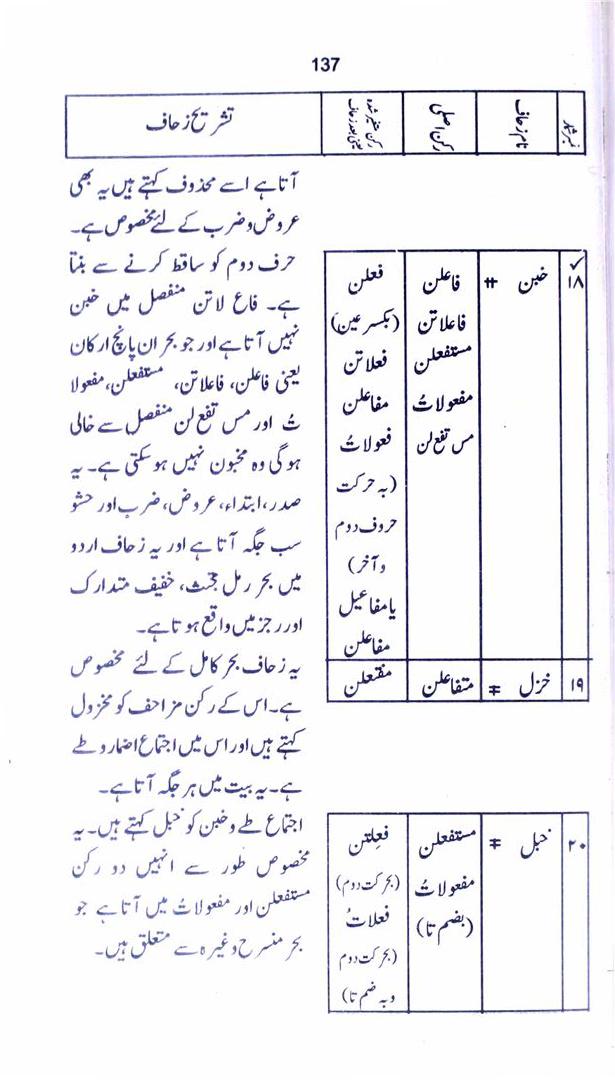 137
نمبر شمار
نام زحاف
رکن اصلی
رکن متغیر شدہ
یعنی بعد زحاف
تشریح زحاف
آتا ہے اسے محذوف کہتے ہیں یہ بھی
عروض و ضرب کے لئے مخصوص ہے۔
۱۸
خبن
فاعلن
فاعلاتن
مستفعلن
مفعولاتُ
مس تفع لن
فعلن
(بکسر عین)
فعلاتن
مفاعلن
فعولاتُ
(بہ حرکت
حروف دوم
و آخر)
یا مفاعیل
مفاعلن
حرف دوم کو ساقط کرنے سے بنتا
ہے۔ فاع لاتن منفصل میں خبن
نہیں آتا ہے اور جو بحر ان پانچ ارکان
یعنی فاعلن، فاعلاتن، مستفعلن، مفعولا
تُ اور مس تفع لن منفصل سے خالی
ہوگی وہ مخبون نہیں ہوسکتی ہے۔ یہ
صدر، ابتداء، عروض، ضرب اور حشو
سب جگہ آتا ہے اور یہ زحاف اردو
میں بحر رمل مجتث، خفیف متدارک
اور رجز میں واقع ہوتا ہے۔
۱۹
خزل
متفاعلن
مفتعلن
یہ زحاف بحر کامل کے لئے مخصوص
ہے۔ اس کے رکن مزاحف کو مخزول
کہتے ہیں اور اس میں اجتماع اضمار و طے
ہے۔ یہ بیت میں ہر جگہ آتا ہے۔
۲۰
خبل
مستفعلن
مفعولاتُ
(بضم تا)
فعلتن
(بحرکت دوم)
فعلاتُ
(بحرکت دوم
و بہ ضم تا)
اجتماع طے و خبن کو خبل کہتے ہیں۔ یہ
مخصوص طور سے انہیں دو رکن
مستفعلن اور مفعولاتُ میں آتا ہے جو
بحر منسرح وغیرہ سے متعلق ہیں۔